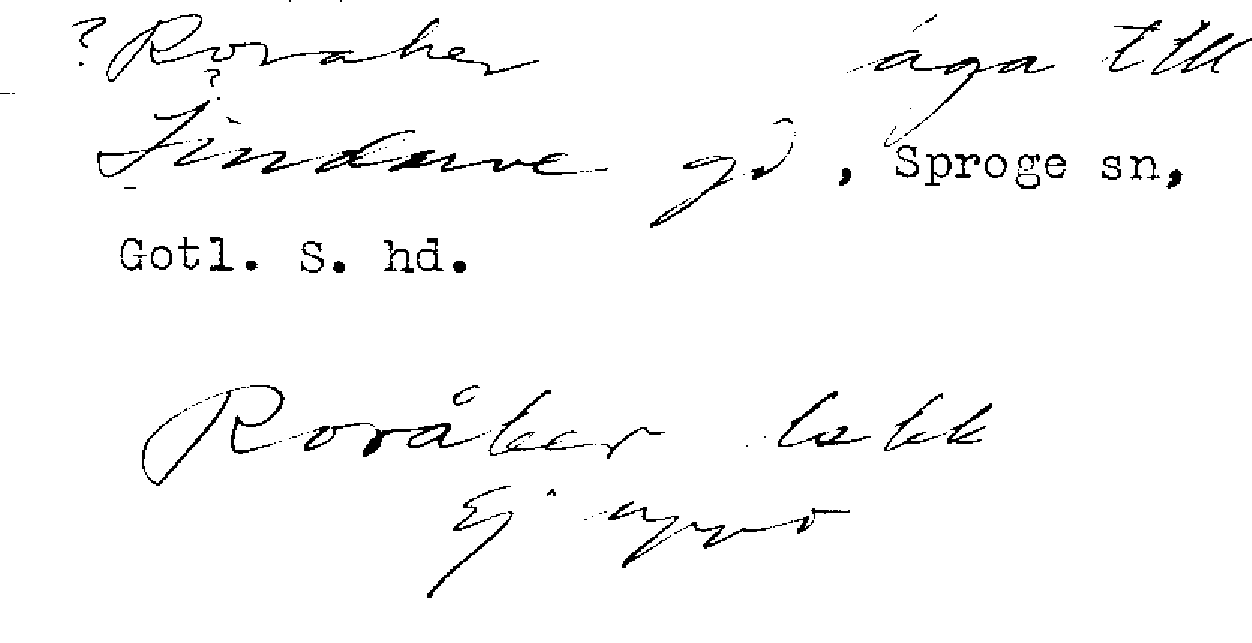 ? Roraker äga till
?
Sindarve gd, Sproge sn,
Gotl. S. hd.
Roråker
Ej